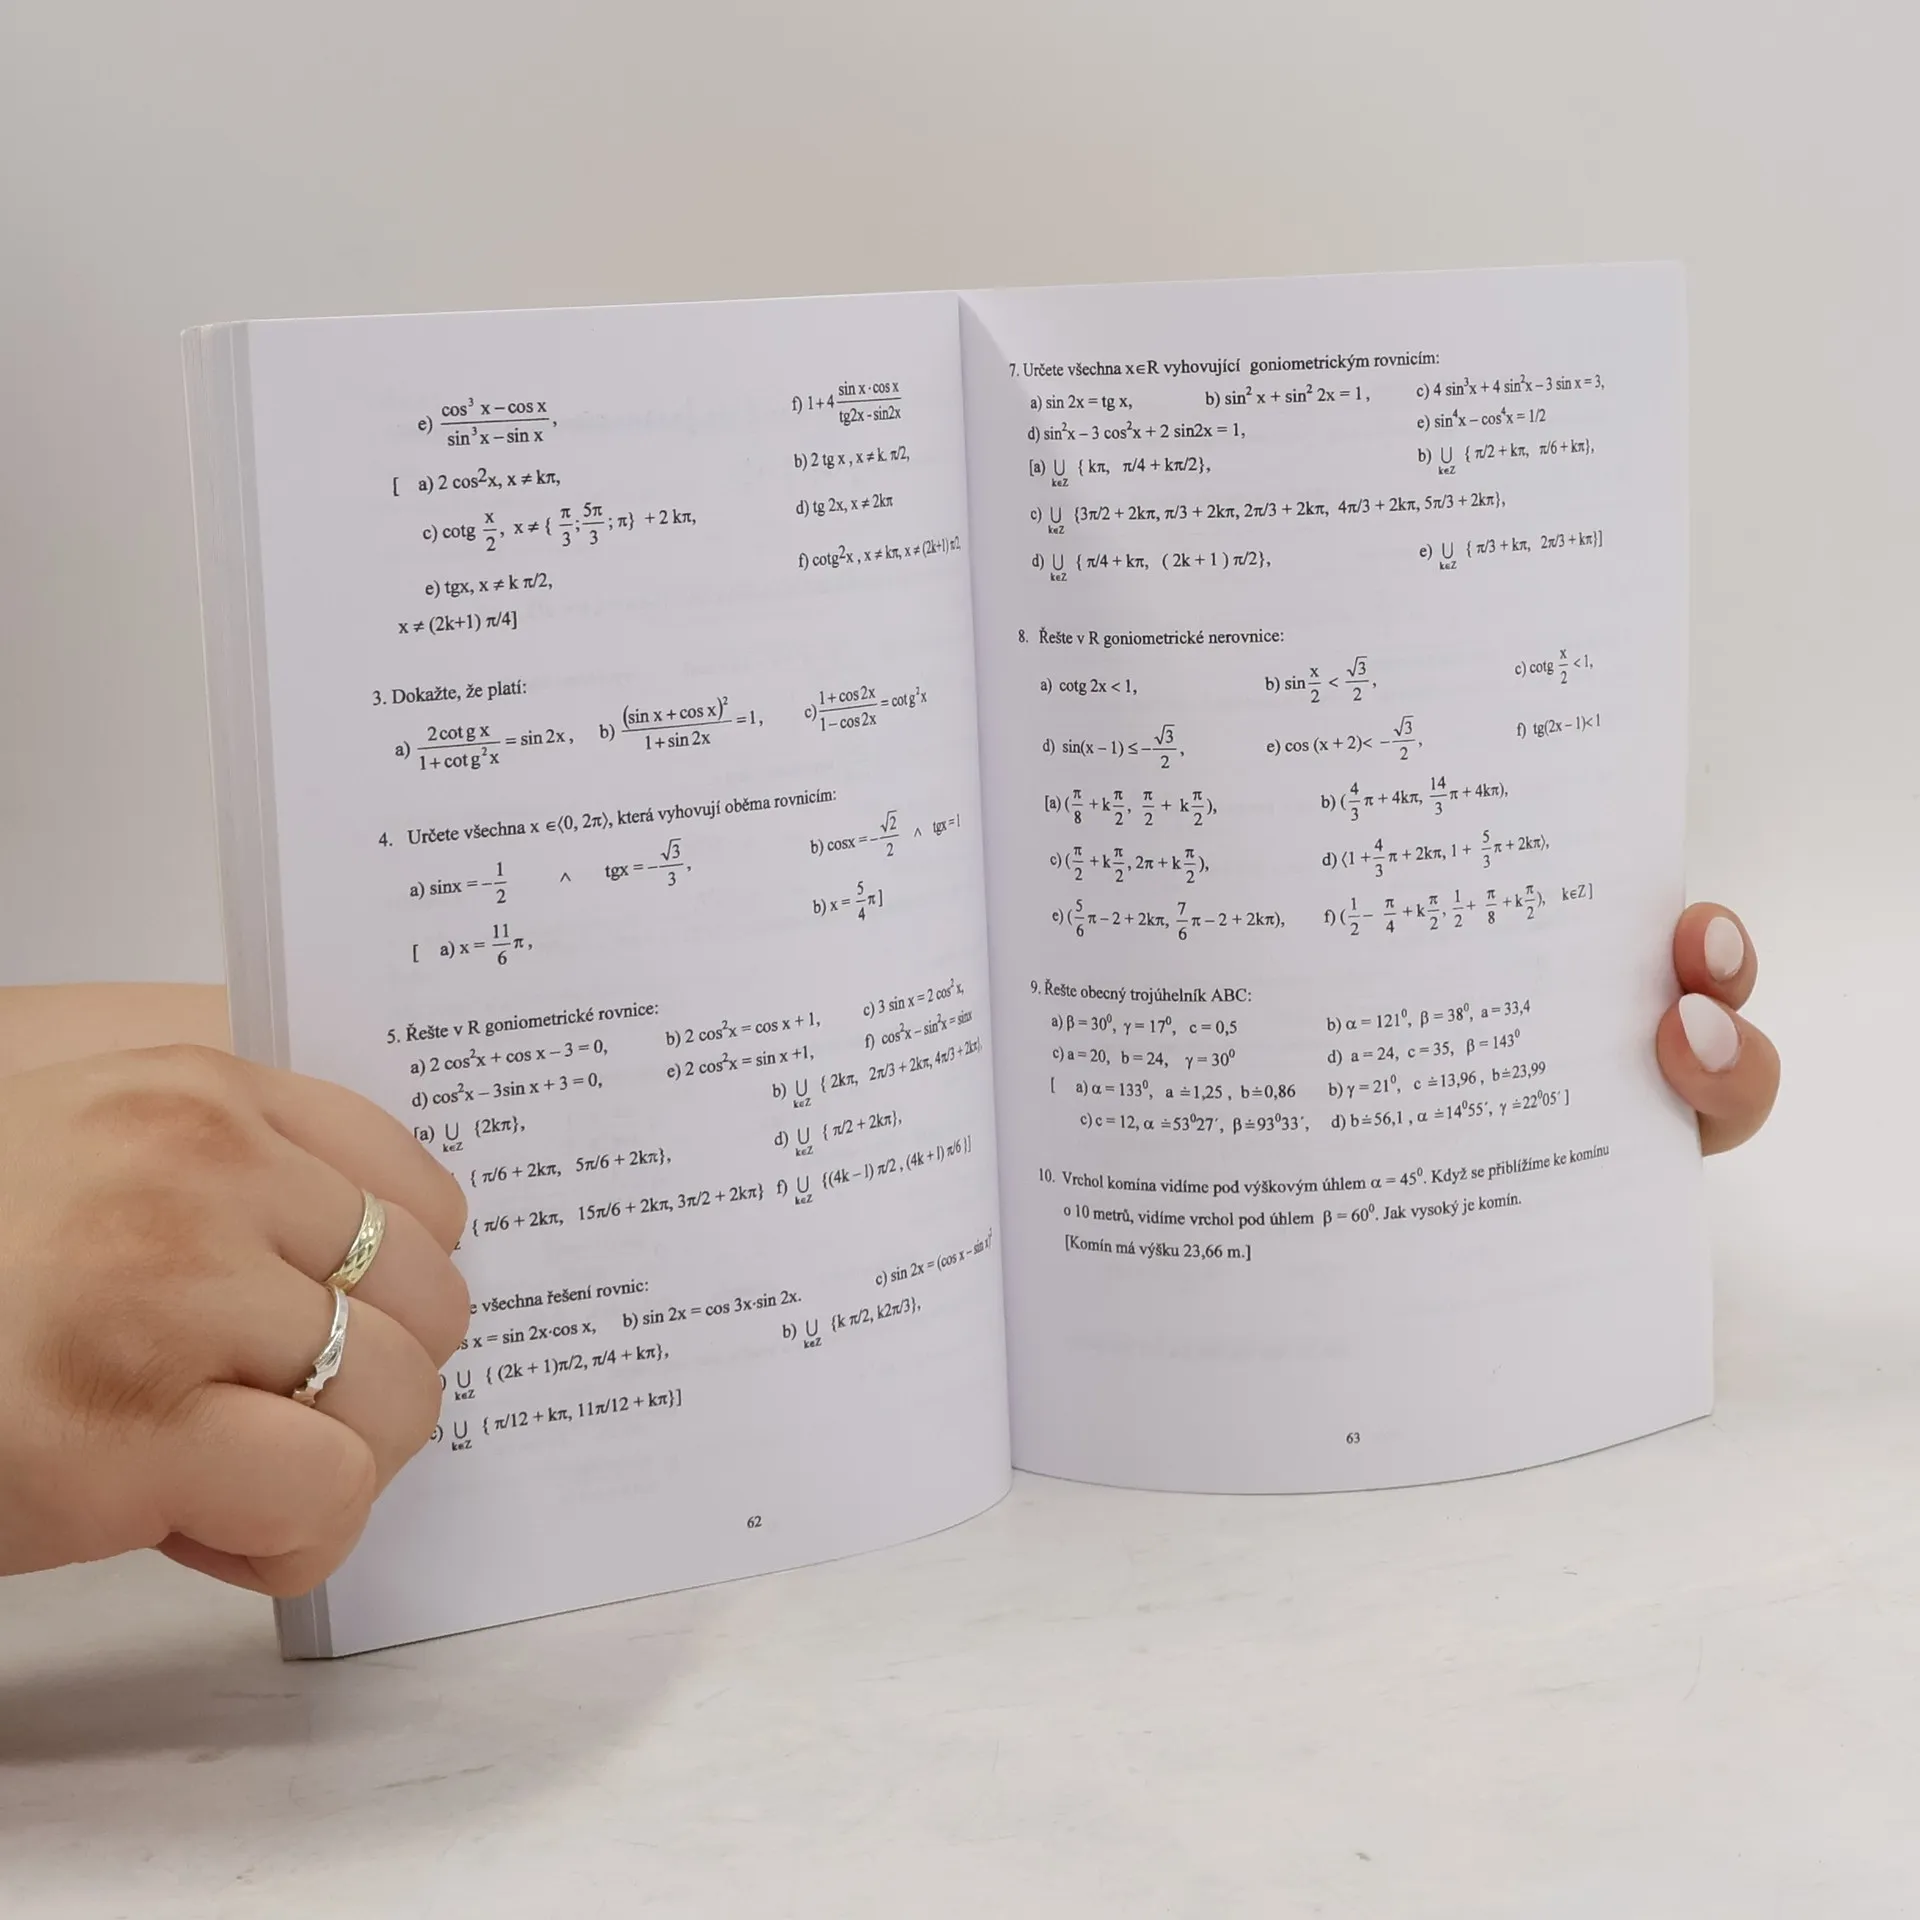 e) cos³ x – cos x / sin³ x – sin x , f) 1+4 sin x · cos x / tg2x - sin2x
[ a) 2 cos²x, x ≠ kπ, b) 2 tg x , x ≠ k. π/2,
c) cotg x/2, x ≠ { π/3 ; 5π/3 ; π} + 2 kπ, d) tg 2x, x ≠ 2kπ
e) tgx, x ≠ k π/2, f) cotg²x , x ≠ kπ, x ≠ (2k+1) π/2,
x ≠ (2k+1) π/4]
3. Dokažte, že platí:
a) 2cotg x / 1+cotg²x = sin 2x , b) (sin x + cos x)² / 1+ sin 2x =1, c) 1+cos2x / 1–cos2x = cotg²x
4. Určete všechna x ∈⟨0, 2π⟩, která vyhovují oběma rovnicím:
a) sinx = – 1/2 ∧ tgx = – √3/3 , b) cosx = – √2/2 ∧ tgx=1
[ a) x = 11/6 π , b) x = 5/4 π ]
5. Řešte v R goniometrické rovnice:
a) 2 cos²x + cos x – 3 = 0, b) 2 cos²x = cos x + 1, c) 3 sin x = 2 cos²x,
d) cos²x – 3sin x + 3 = 0, e) 2 cos²x = sin x +1, f) cos²x – sin²x = sinx
[a) ∪ k∈Z {2kπ}, b) ∪ k∈Z { 2kπ, 2π/3 + 2kπ, 4π/3 + 2kπ},
{ π/6 + 2kπ, 5π/6 + 2kπ}, d) ∪ k∈Z { π/2 + 2kπ},
{ π/6 + 2kπ, 15π/6 + 2kπ, 3π/2 + 2kπ} f) ∪ k∈Z {(4k – 1) π/2 , (4k + 1) π/6 }]
všechna řešení rovnic:
x = sin 2x·cos x, b) sin 2x = cos 3x·sin 2x. c) sin 2x = (cos x – sin x)²
) ∪ k∈Z { (2k + 1)π/2, π/4 + kπ}, b) ∪ k∈Z {k π/2, k2π/3},
) ∪ k∈Z { π/12 + kπ, 11π/12 + kπ}]
62
7. Určete všechna x∈R vyhovující goniometrickým rovnicím:
a) sin 2x = tg x, b) sin² x + sin² 2x = 1 , c) 4 sin³x + 4 sin²x – 3 sin x = 3,
d) sin²x – 3 cos²x + 2 sin2x = 1, e) sin⁴x – cos⁴x = 1/2
[a) ∪ k∈Z { kπ, π/4 + kπ/2}, b) ∪ k∈Z { π/2 + kπ, π/6 + kπ},
c) ∪ k∈Z {3π/2 + 2kπ, π/3 + 2kπ, 2π/3 + 2kπ, 4π/3 + 2kπ, 5π/3 + 2kπ},
d) ∪ k∈Z { π/4 + kπ, ( 2k + 1 ) π/2}, e) ∪ k∈Z { π/3 + kπ, 2π/3 + kπ}]
8. Řešte v R goniometrické nerovnice:
a) cotg 2x < 1, b) sin x/2 < √3/2 , c) cotg x/2 < 1,
d) sin(x – 1) ≤ – √3/2 , e) cos (x + 2)< – √3/2 , f) tg(2x – 1)< 1
[a) ( π/8 + k π/2 , π/2 + k π/2 ), b) ( 4/3 π + 4kπ, 14/3 π + 4kπ),
c) ( π/2 + k π/2 , 2π + k π/2 ), d) ⟨1 + 4/3 π + 2kπ, 1 + 5/3 π + 2kπ⟩,
e) ( 5/6 π – 2 + 2kπ, 7/6 π – 2 + 2kπ), f) ( 1/2 – π/4 + k π/2 , 1/2 + π/8 + k π/2 ), k∈Z ]
9. Řešte obecný trojúhelník ABC:
a) β = 30⁰, γ = 17⁰, c = 0,5 b) α = 121⁰, β = 38⁰, a = 33,4
c) a = 20, b = 24, γ = 30⁰ d) a = 24, c = 35, β = 143⁰
[ a) α = 133⁰, a ≐ 1,25 , b ≐ 0,86 b) γ = 21⁰, c ≐ 13,96 , b ≐ 23,99
c) c = 12, α ≐ 53⁰27´, β ≐ 93⁰33´, d) b ≐ 56,1 , α ≐ 14⁰55´, γ ≐ 22⁰05´ ]
10. Vrchol komína vidíme pod výškovým úhlem α = 45⁰. Když se přiblížíme ke komínu
o 10 metrů, vidíme vrchol pod úhlem β = 60⁰. Jak vysoký je komín.
[Komín má výšku 23,66 m.]
63